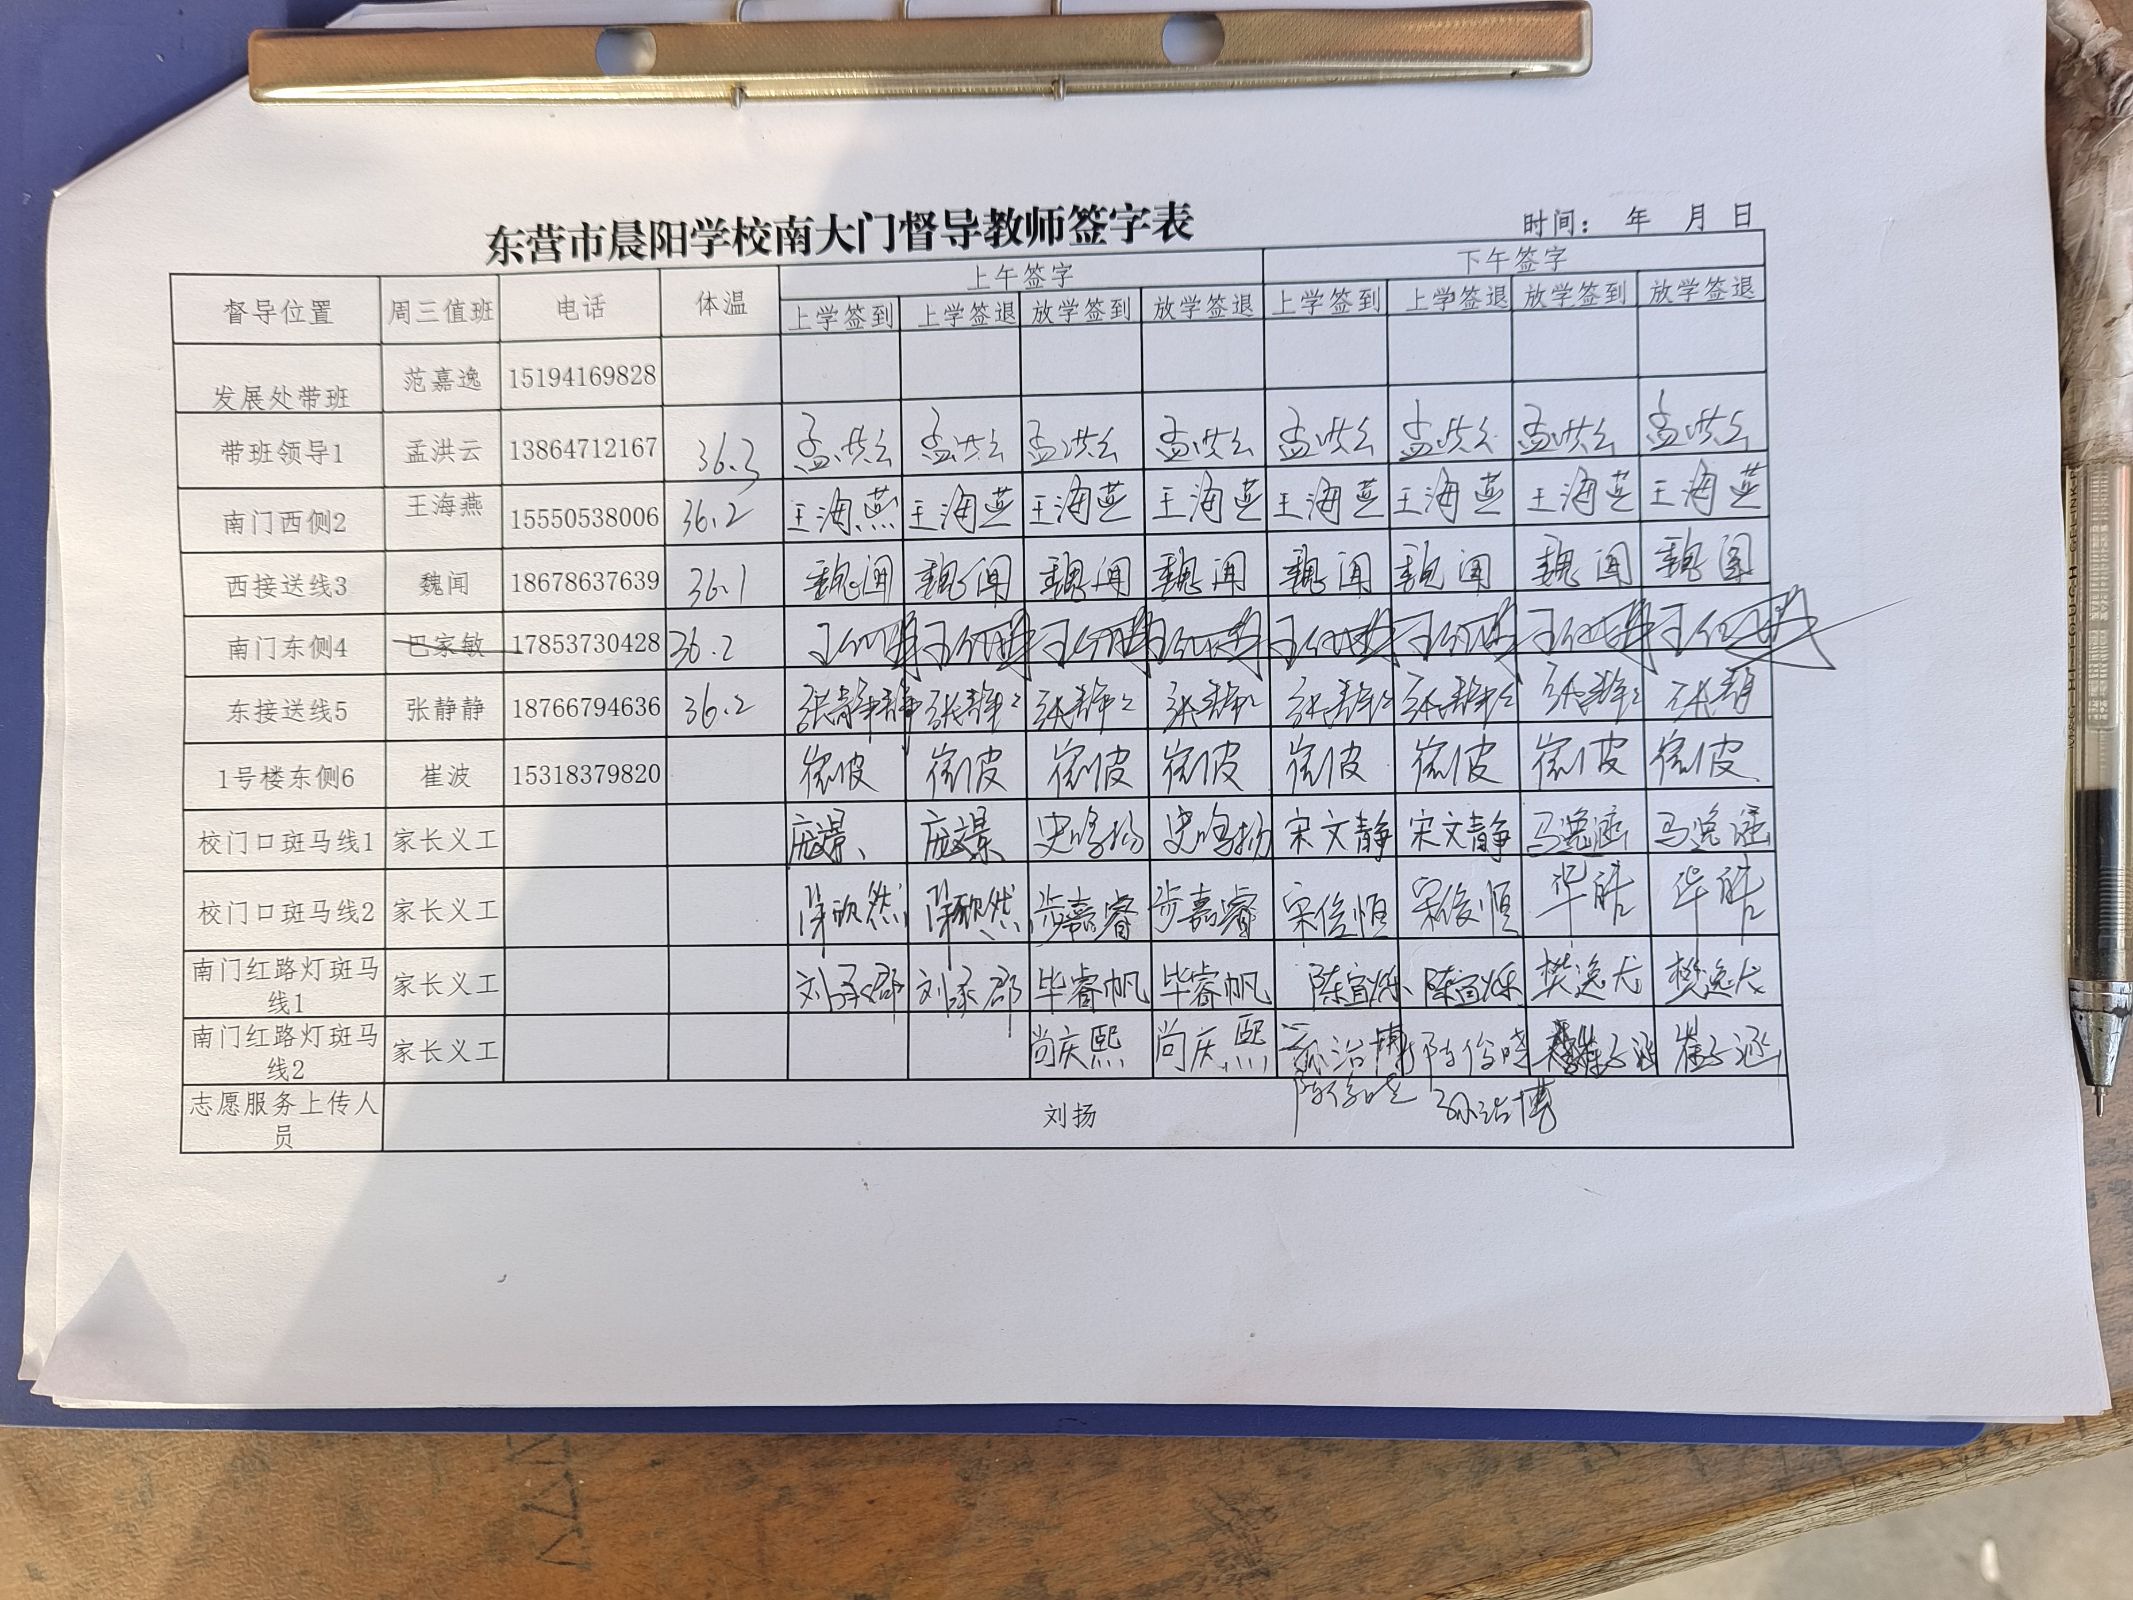 东营市晨阳学校南大门督导教师签字表
时间： 年 月 日
督导位置 周三值班 电话 体温 上午签字 下午签字
上学签到 上学签退 放学签到 放学签退 上学签到 上学签退 放学签到 放学签退
发展处带班 范嘉逸 15194169828
带班领导1 孟洪云 13864712167 36.3 孟洪云 孟洪云 孟洪云 孟洪云 孟洪云 孟洪云 孟洪云 孟洪云
南门西侧2 王海燕 15550538006 36.2 王海燕 王海燕 王海燕 王海燕 王海燕 王海燕 王海燕 王海燕
西接送线3 魏闻 18678637639 36.1 魏闻 魏闻 魏闻 魏闻 魏闻 魏闻 魏闻 魏闻
南门东侧4 巴家敏 17853730428 36.2
东接送线5 张静静 18766794636 36.2 张静静 张静2 张静2 张静2 张静2 张静2 张静2 张静
1号楼东侧6 崔波 15318379820 崔波 崔波 崔波 崔波 崔波 崔波 崔波 崔波
校门口斑马线1 家长义工 宋文静 宋文静 马逸涵 马逸涵
校门口斑马线2 家长义工 步嘉睿 步嘉睿 宋俊恒 宋俊恒 华皓 华皓
南门红路灯斑马线1 家长义工 刘承郡 刘承郡 毕睿帆 毕睿帆 陈宣烁 陈宣烁 樊逸尤 樊逸尤
南门红路灯斑马线2 家长义工 尚庆熙 尚庆熙 孙治博 陈俊晓 崔子涵 崔子涵
志愿服务上传人员 刘扬 陈俊晓 孙治博